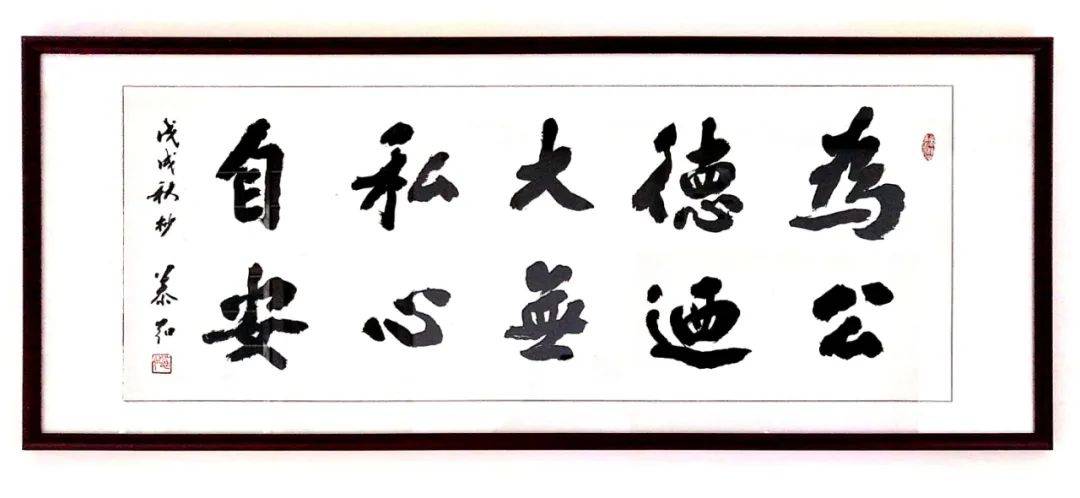 為公
德迺
大無
私心
自安
戊戌秋杪 慕